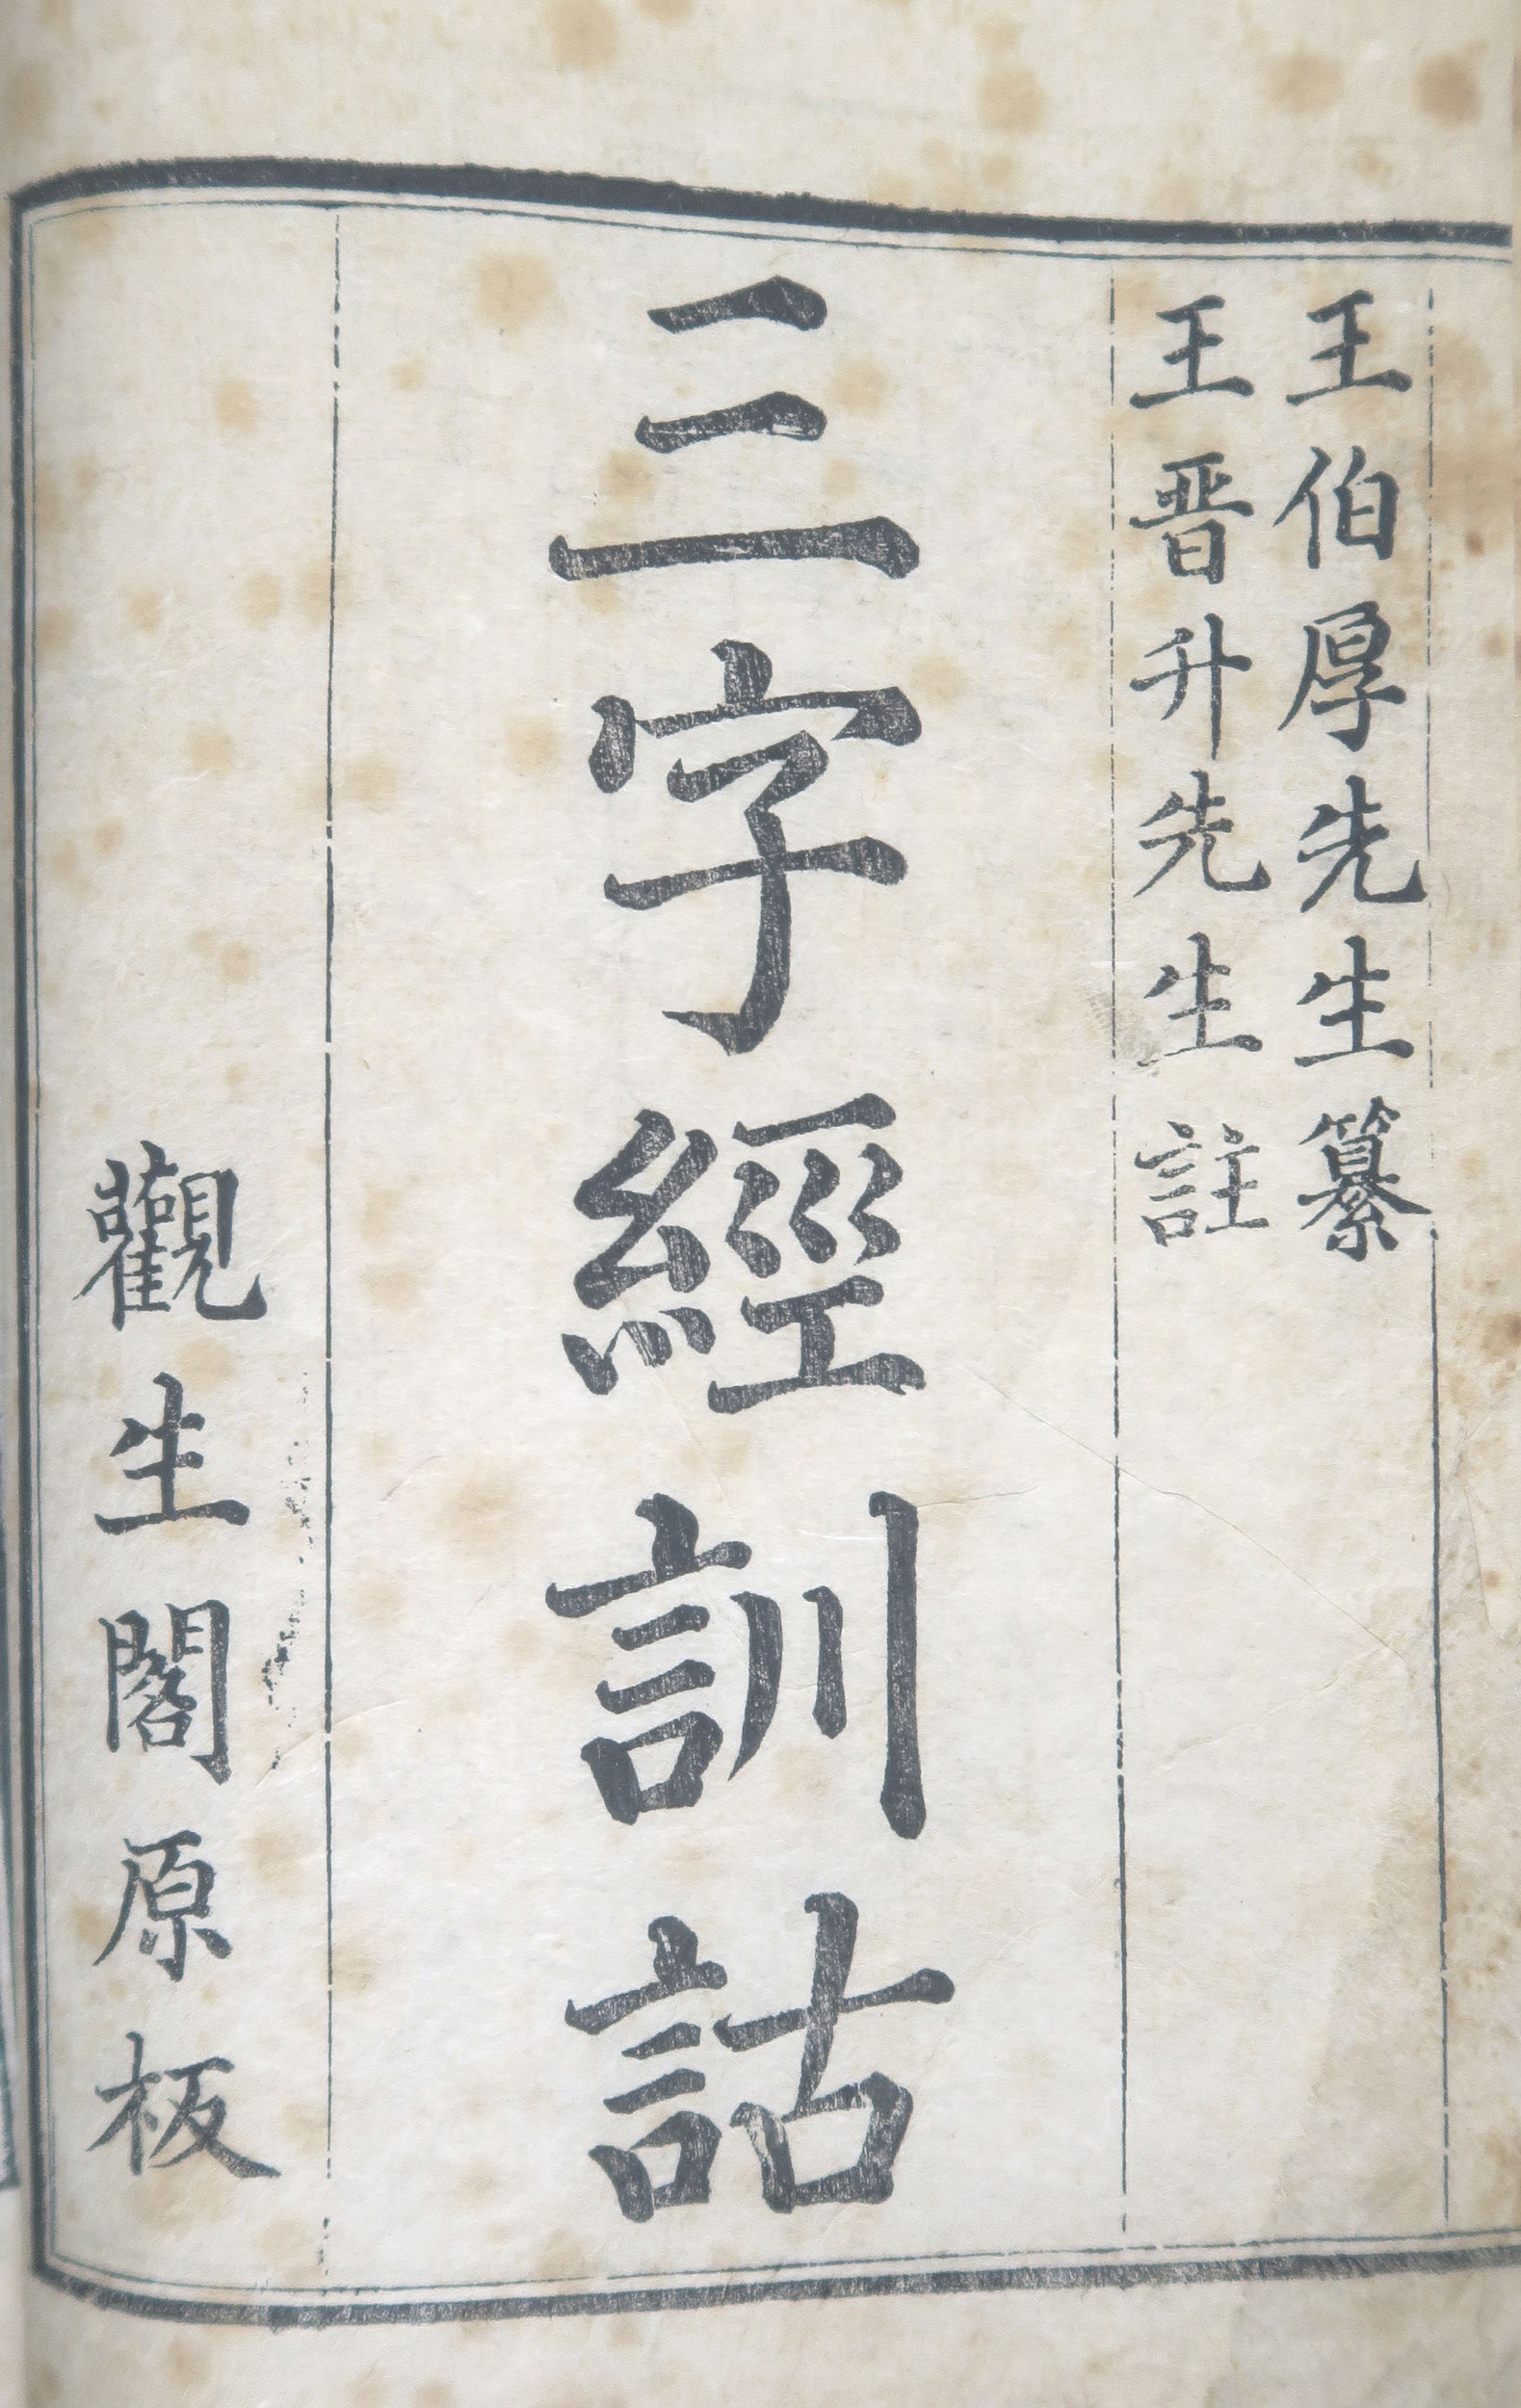 王伯厚先生纂
王晋升先生註
三字經訓詁
觀生閣原板